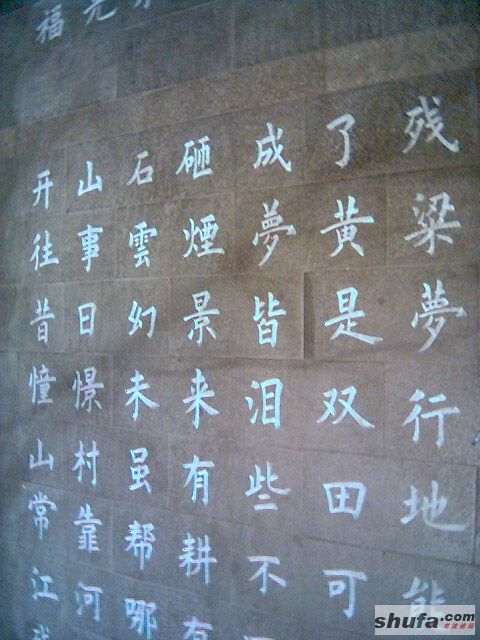 福元
开山石砸成了残
往事雲煙夢黄粱
昔日幻景皆是夢
憧憬未来泪双行
山村虽有些田地
常靠帮耕不可能
江河哪有
shufa.com
书法论坛